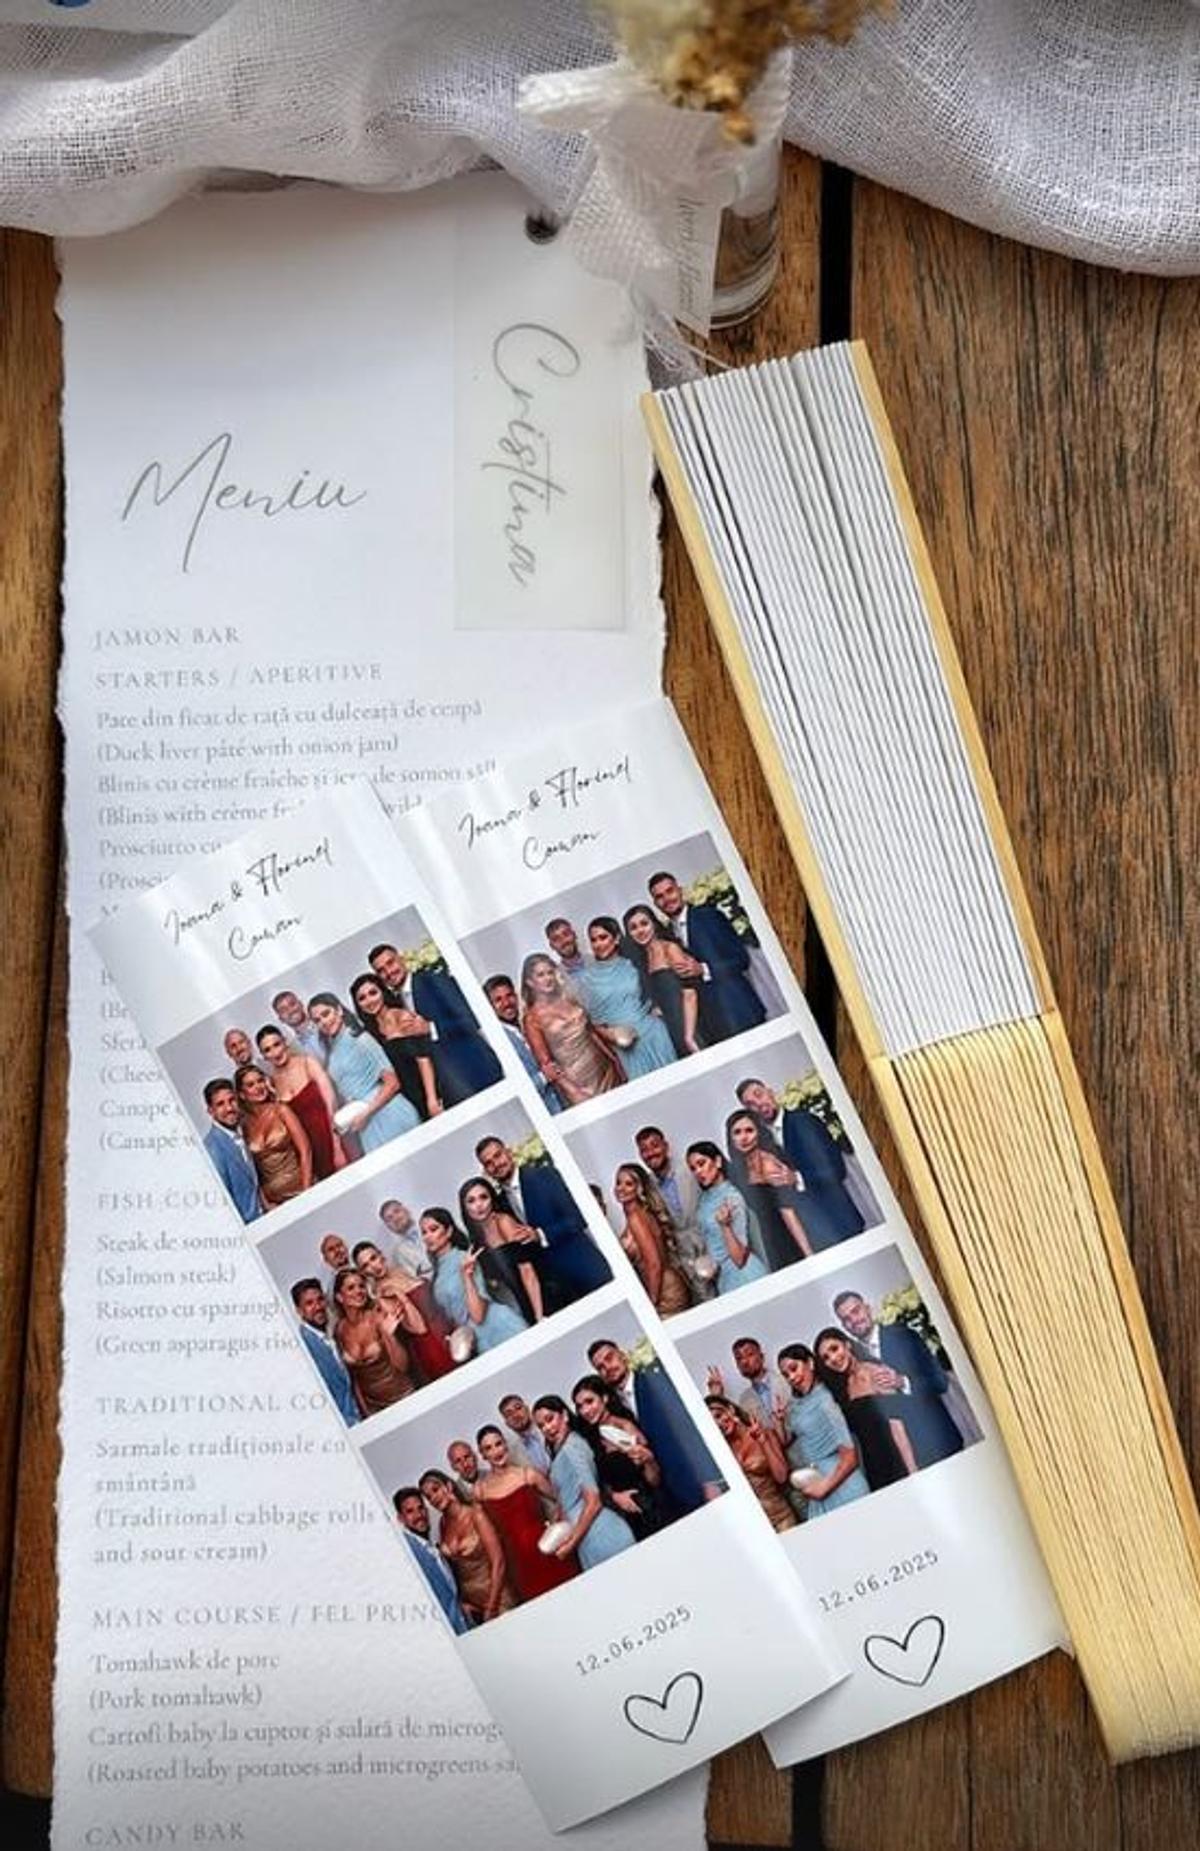 Meniu
Cristina
JAMON BAR
STARTERS / APERITIVE
Pate din ficat de rață cu dulceață de ceapă
(Duck liver pâté with onion jam)
Blinis cu crème fraiche și
de somon
(Blinis with crème
wild
Prosciutto cu
Sfera
Canapé
(Canapé
FISH
Steak de somon
(Salmon steak)
Risotto cu
(Green asparagus
TRADITIONAL
Sarmale tradiționale cu
smântână
(Traditional cabbage rolls
and sour cream)
MAIN COURSE / FEL
Tomahawk de porc
(Pork tomahawk)
Cartofi baby la cuptor și salată de
(Roasted baby potatoes and microgreens
CANDY BAR
Ioana & Florinel
Coman
12.06.2025
Ioana & Florinel
Coman
12.06.2025